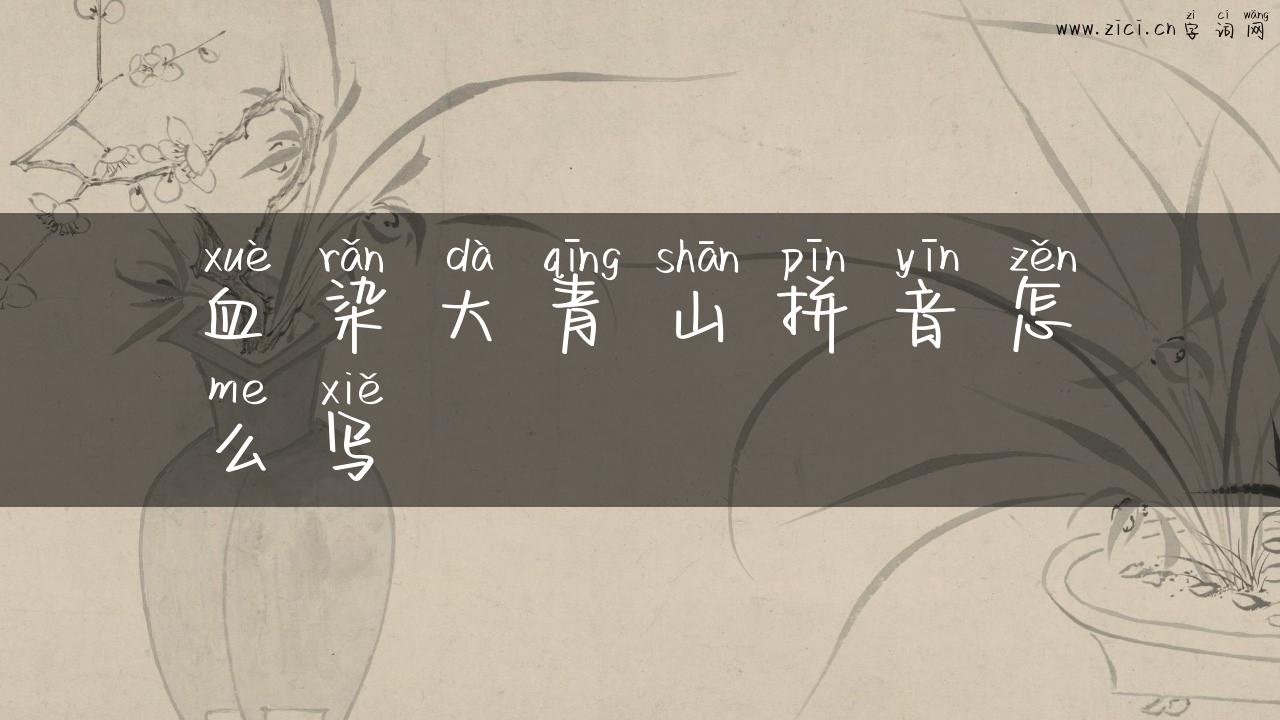 zì cí wǎng
www.zici.cn 字 词 网
xuè rǎn dà qīng shān pīn yīn zěn
血 染 大 青 山 拼 音 怎
me xiě
么 写